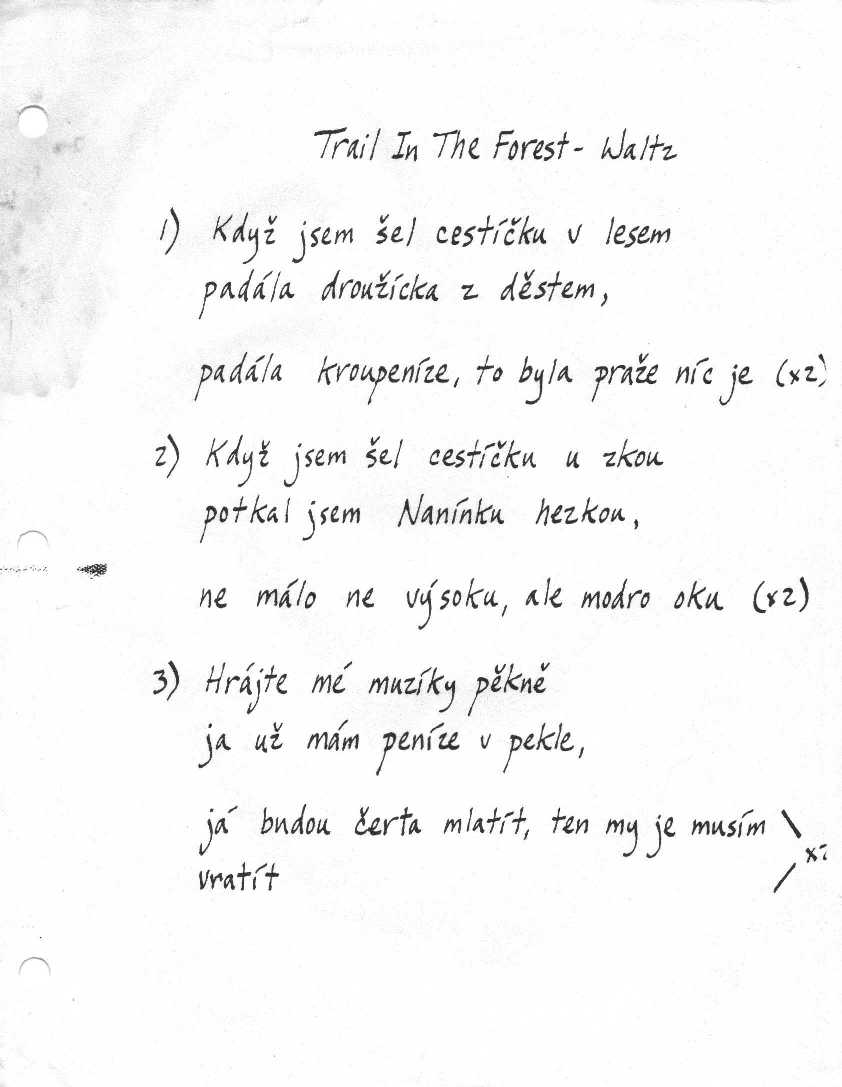 Trail In The Forest - Waltz
1) Když jsem šel cestíčku v lesem
padála droužícka z děstem,
padála kroupeníze, to byla praže níc je (x2)
2) Když jsem šel cestíčku u zkou
potkal jsem Nanínku hezkou,
ne málo ne výsoku, ale modro oku (x2)
3) Hrájte mé muzíky pěkně
ja už mám peníze v pekle,
já budou čerta mlatít, ten my je musím \
x2
vratít /